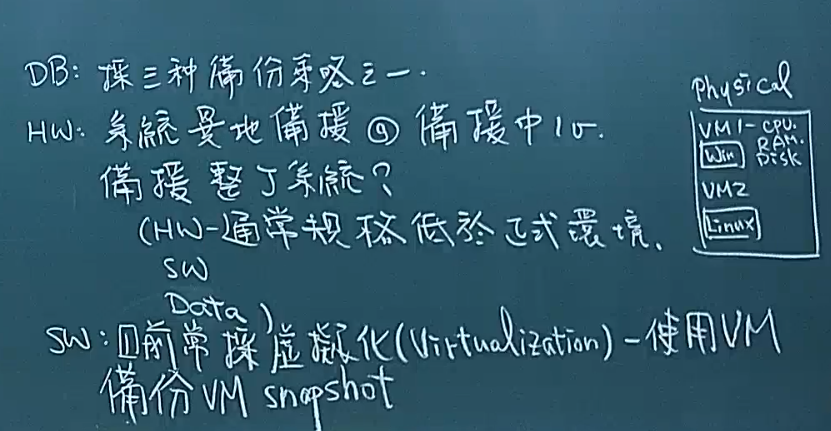 DB: 採三种備份策略之一.
HW: 系統異地備援@備援中心.
備援整了系統?
(HW-通常規格低於正式環境.
SW
Data)
SW: 目前常採虛擬化(Virtualization)-使用VM
備份VM snapshot
Physical
VM1-CPU.
RAM.
Win Disk
VM2
Linux